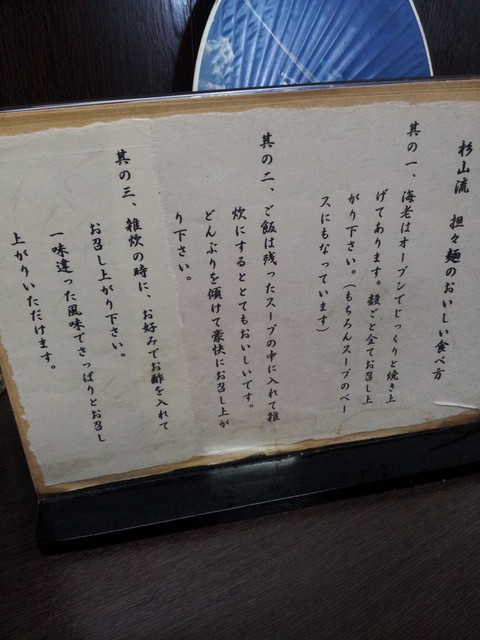 杉山流 担々麺のおいしい食べ方
其の一、海老はオーブンでじっくりと焼き上
げてあります。殻ごと全てお召し上
がり下さい。(もちろんスープのベー
スにもなっています)
其の二、ご飯は残ったスープの中に入れて雑
炊にするととてもおいしいです。
どんぶりを傾けて豪快にお召し上が
り下さい。
其の三、雑炊の時に、お好みでお酢を入れて
お召し上がり下さい。
一味違った風味でさっぱりとお召し
上がりいただけます。